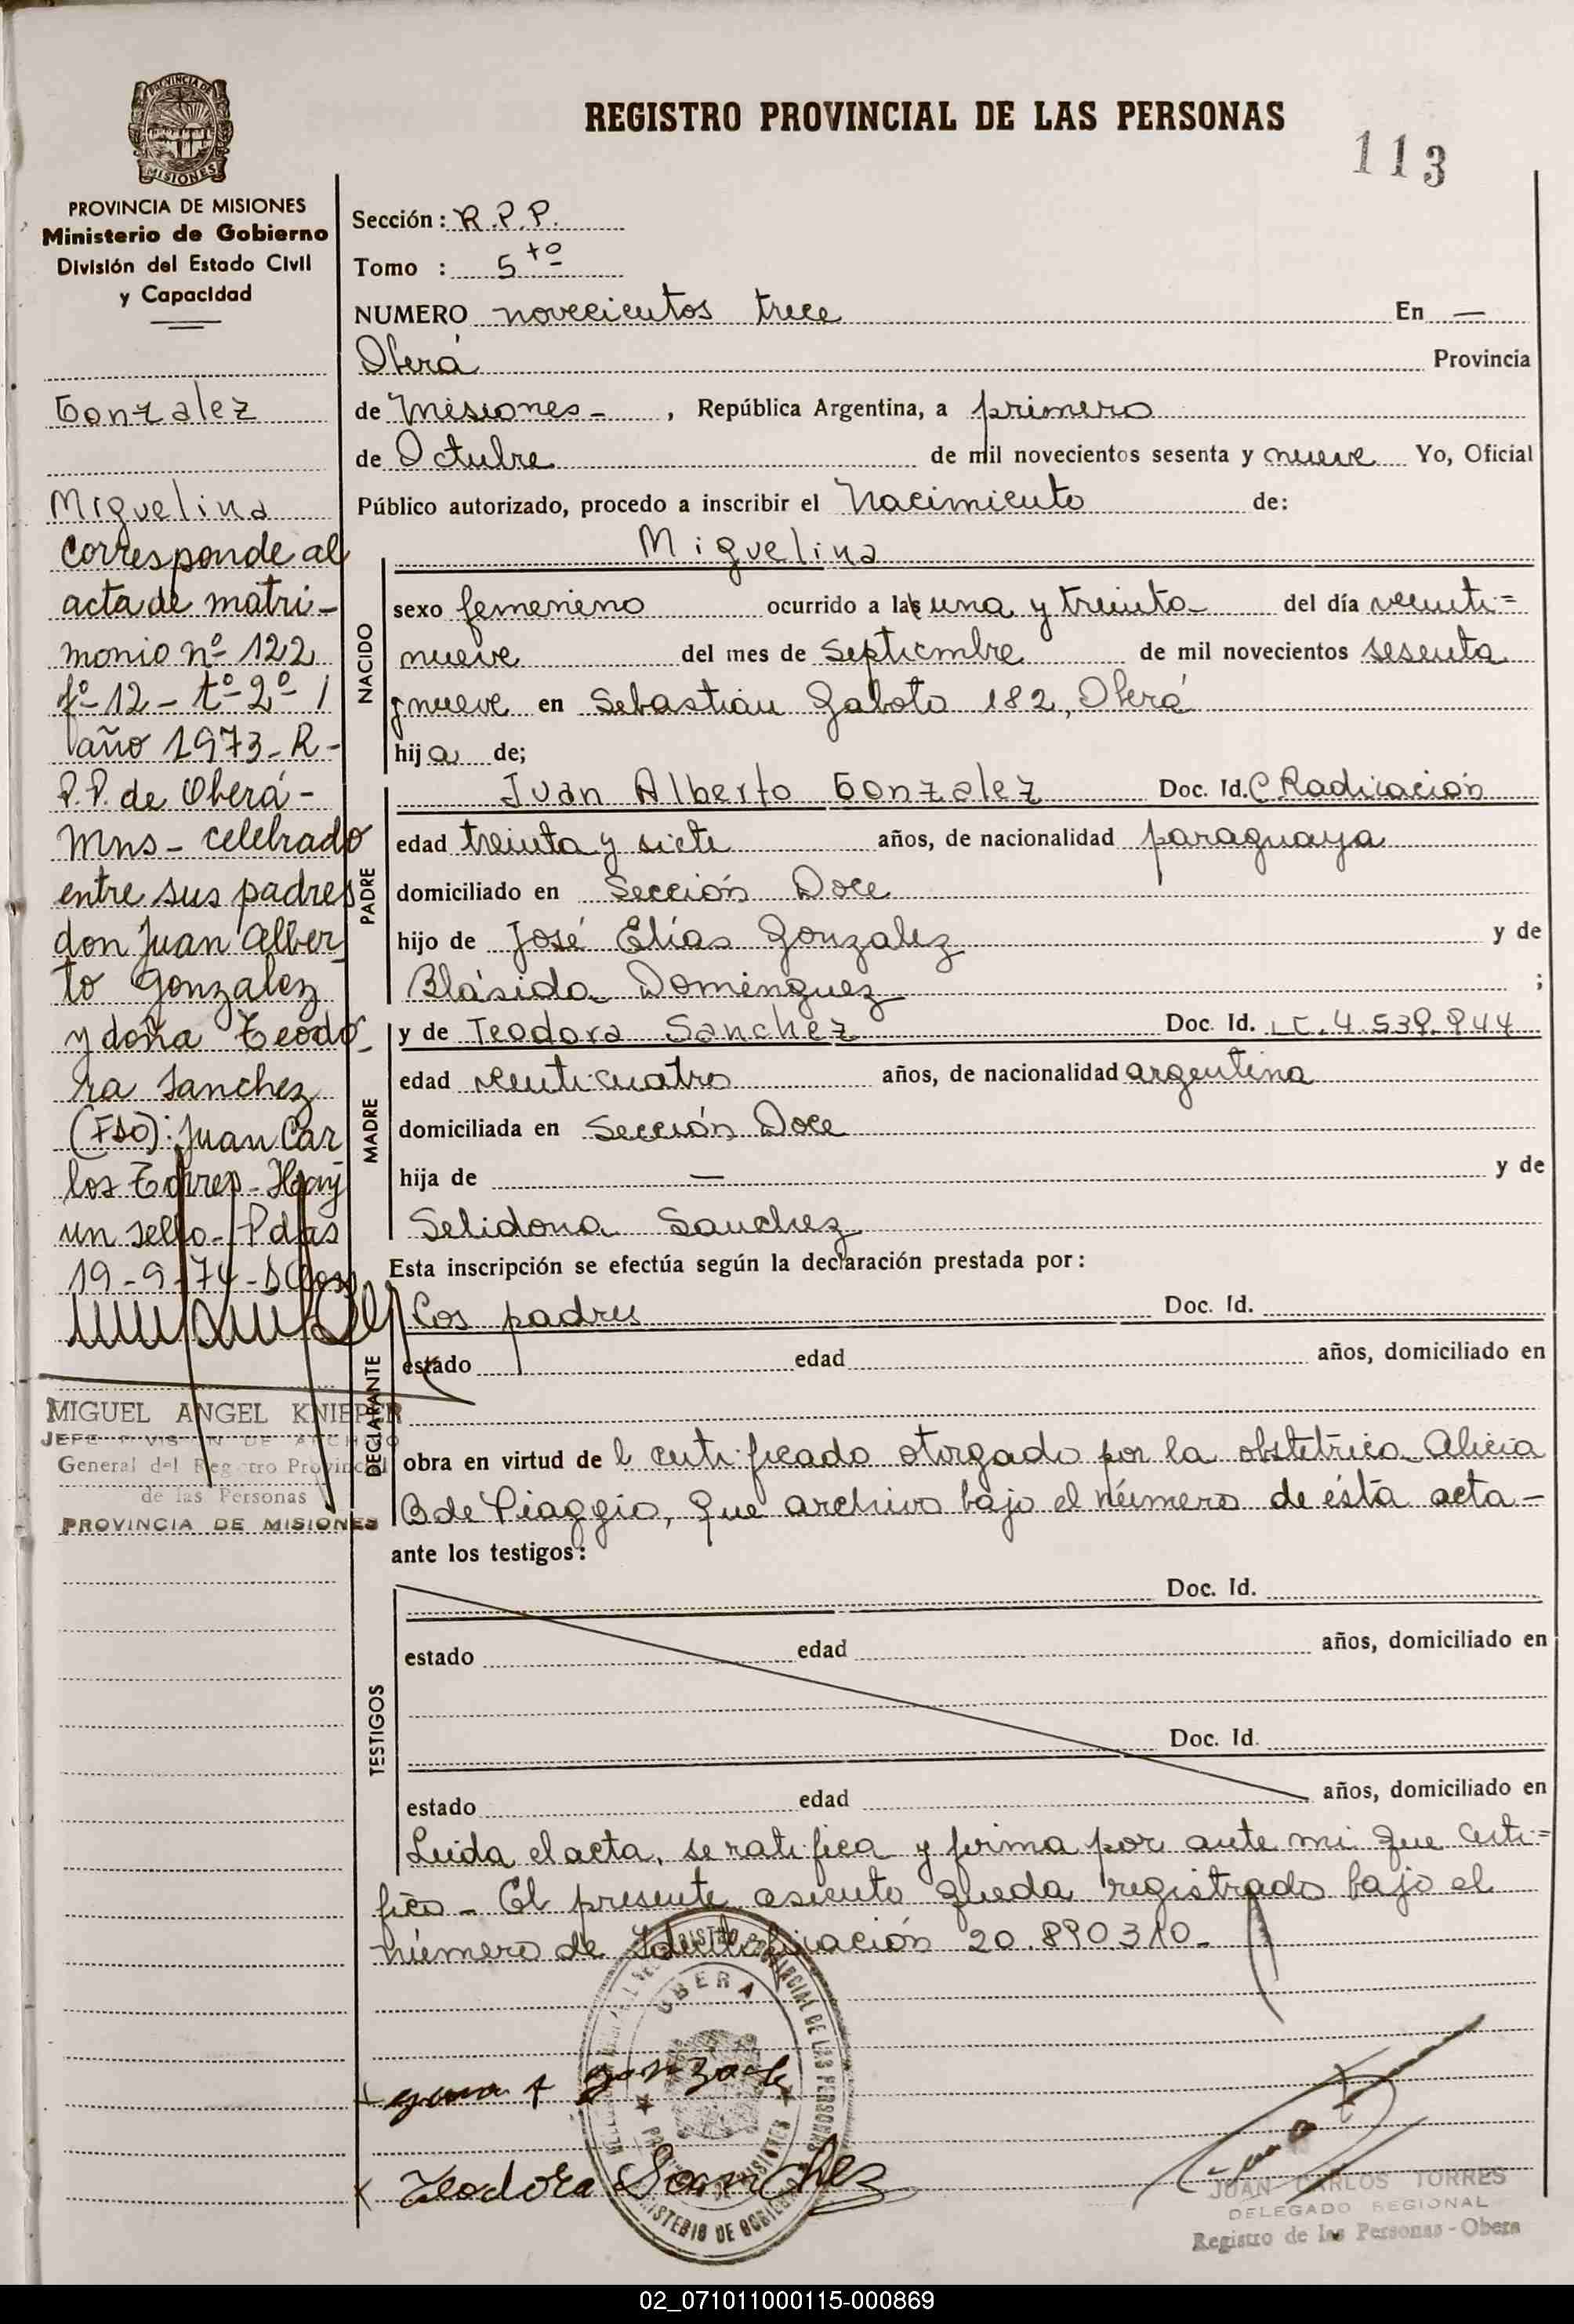 REGISTRO PROVINCIAL DE LAS PERSONAS
113
PROVINCIA DE MISIONES
MISIONES
PROVINCIA DE MISIONES
Ministerio de Gobierno
División del Estado Civil
y Capacidad
Gonzalez
Miguelina
corresponde al
acta de matri-
monio nº 122
fº 12 - tº 2º /
año 1973 - R-
P.P. de Oberá -
Mns - celebrado
entre sus padres
don Juan Alber-
to Gonzalez
y doña Teodo-
ra Sanchez
(Fdo): Juan Car
los Torres - Hay
un sello - Pdas
19-9-74 -
MIGUEL ANGEL KNIEPER
JEFE DIVISION DE ARCHIVO
General del Registro Provincial
de las Personas
PROVINCIA DE MISIONES
Sección: R.P.P.
Tomo : 5to
NUMERO novecientos trece En —
Oberá Provincia
de Misiones - , República Argentina, a primero
de Octubre de mil novecientos sesenta y nueve Yo, Oficial
Público autorizado, procedo a inscribir el Nacimiento de:
Miguelina
NACIDO
sexo femenino ocurrido a las una y treinta - del día veinti=
nueve del mes de Septiembre de mil novecientos sesenta
y nueve en Sebastián Gaboto 182, Oberá
hija de;
PADRE
Juan Alberto Gonzalez Doc. Id. C. Radicación
edad treinta y siete años, de nacionalidad paraguaya
domiciliado en Sección Doce
hijo de José Elías Gonzalez y de
Blásida Dominguez ;
MADRE
y de Teodora Sanchez Doc. Id. LC. 4.539.944
edad veinticuatro años, de nacionalidad argentina
domiciliada en Sección Doce
hija de — y de
Selidona Sanchez
Esta inscripción se efectúa según la declaración prestada por:
DECLARANTE
Los padres Doc. Id.
estado edad años, domiciliado en
obra en virtud de l certificado otorgado por la obstetrica Alicia
B de Piaggio, que archivo bajo el número de ésta acta -
ante los testigos:
TESTIGOS
Doc. Id.
estado edad años, domiciliado en
Doc. Id.
estado edad años, domiciliado en
Leida el acta, se ratifica y firma por ante mi que certi=
fico - El presente asiento queda registrado bajo el
número de Identificación 20.890.310 -
OBERA
Teodora Sanchez
JUAN CARLOS TORRES
DELEGADO REGIONAL
Registro de las Personas - Obera
02_071011000115-000869